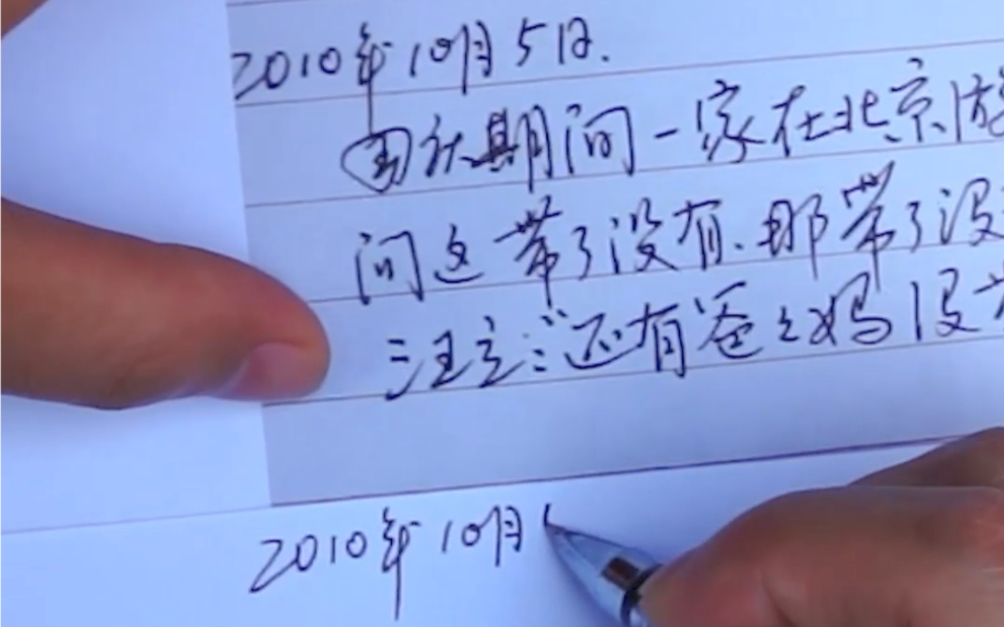 2010年10月5日.
国庆期间一家在北京游
问这带了没有.那带了没
注意:"还有爸爸妈没
2010年10月